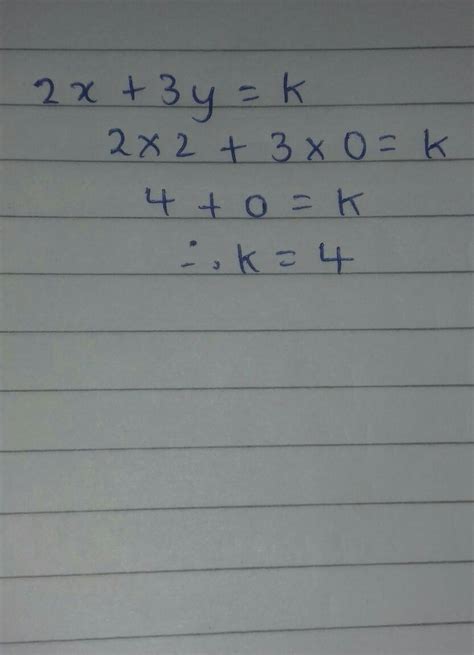 2x + 3y = k
2×2 + 3×0 = k
4 + 0 = k
∴ k = 4